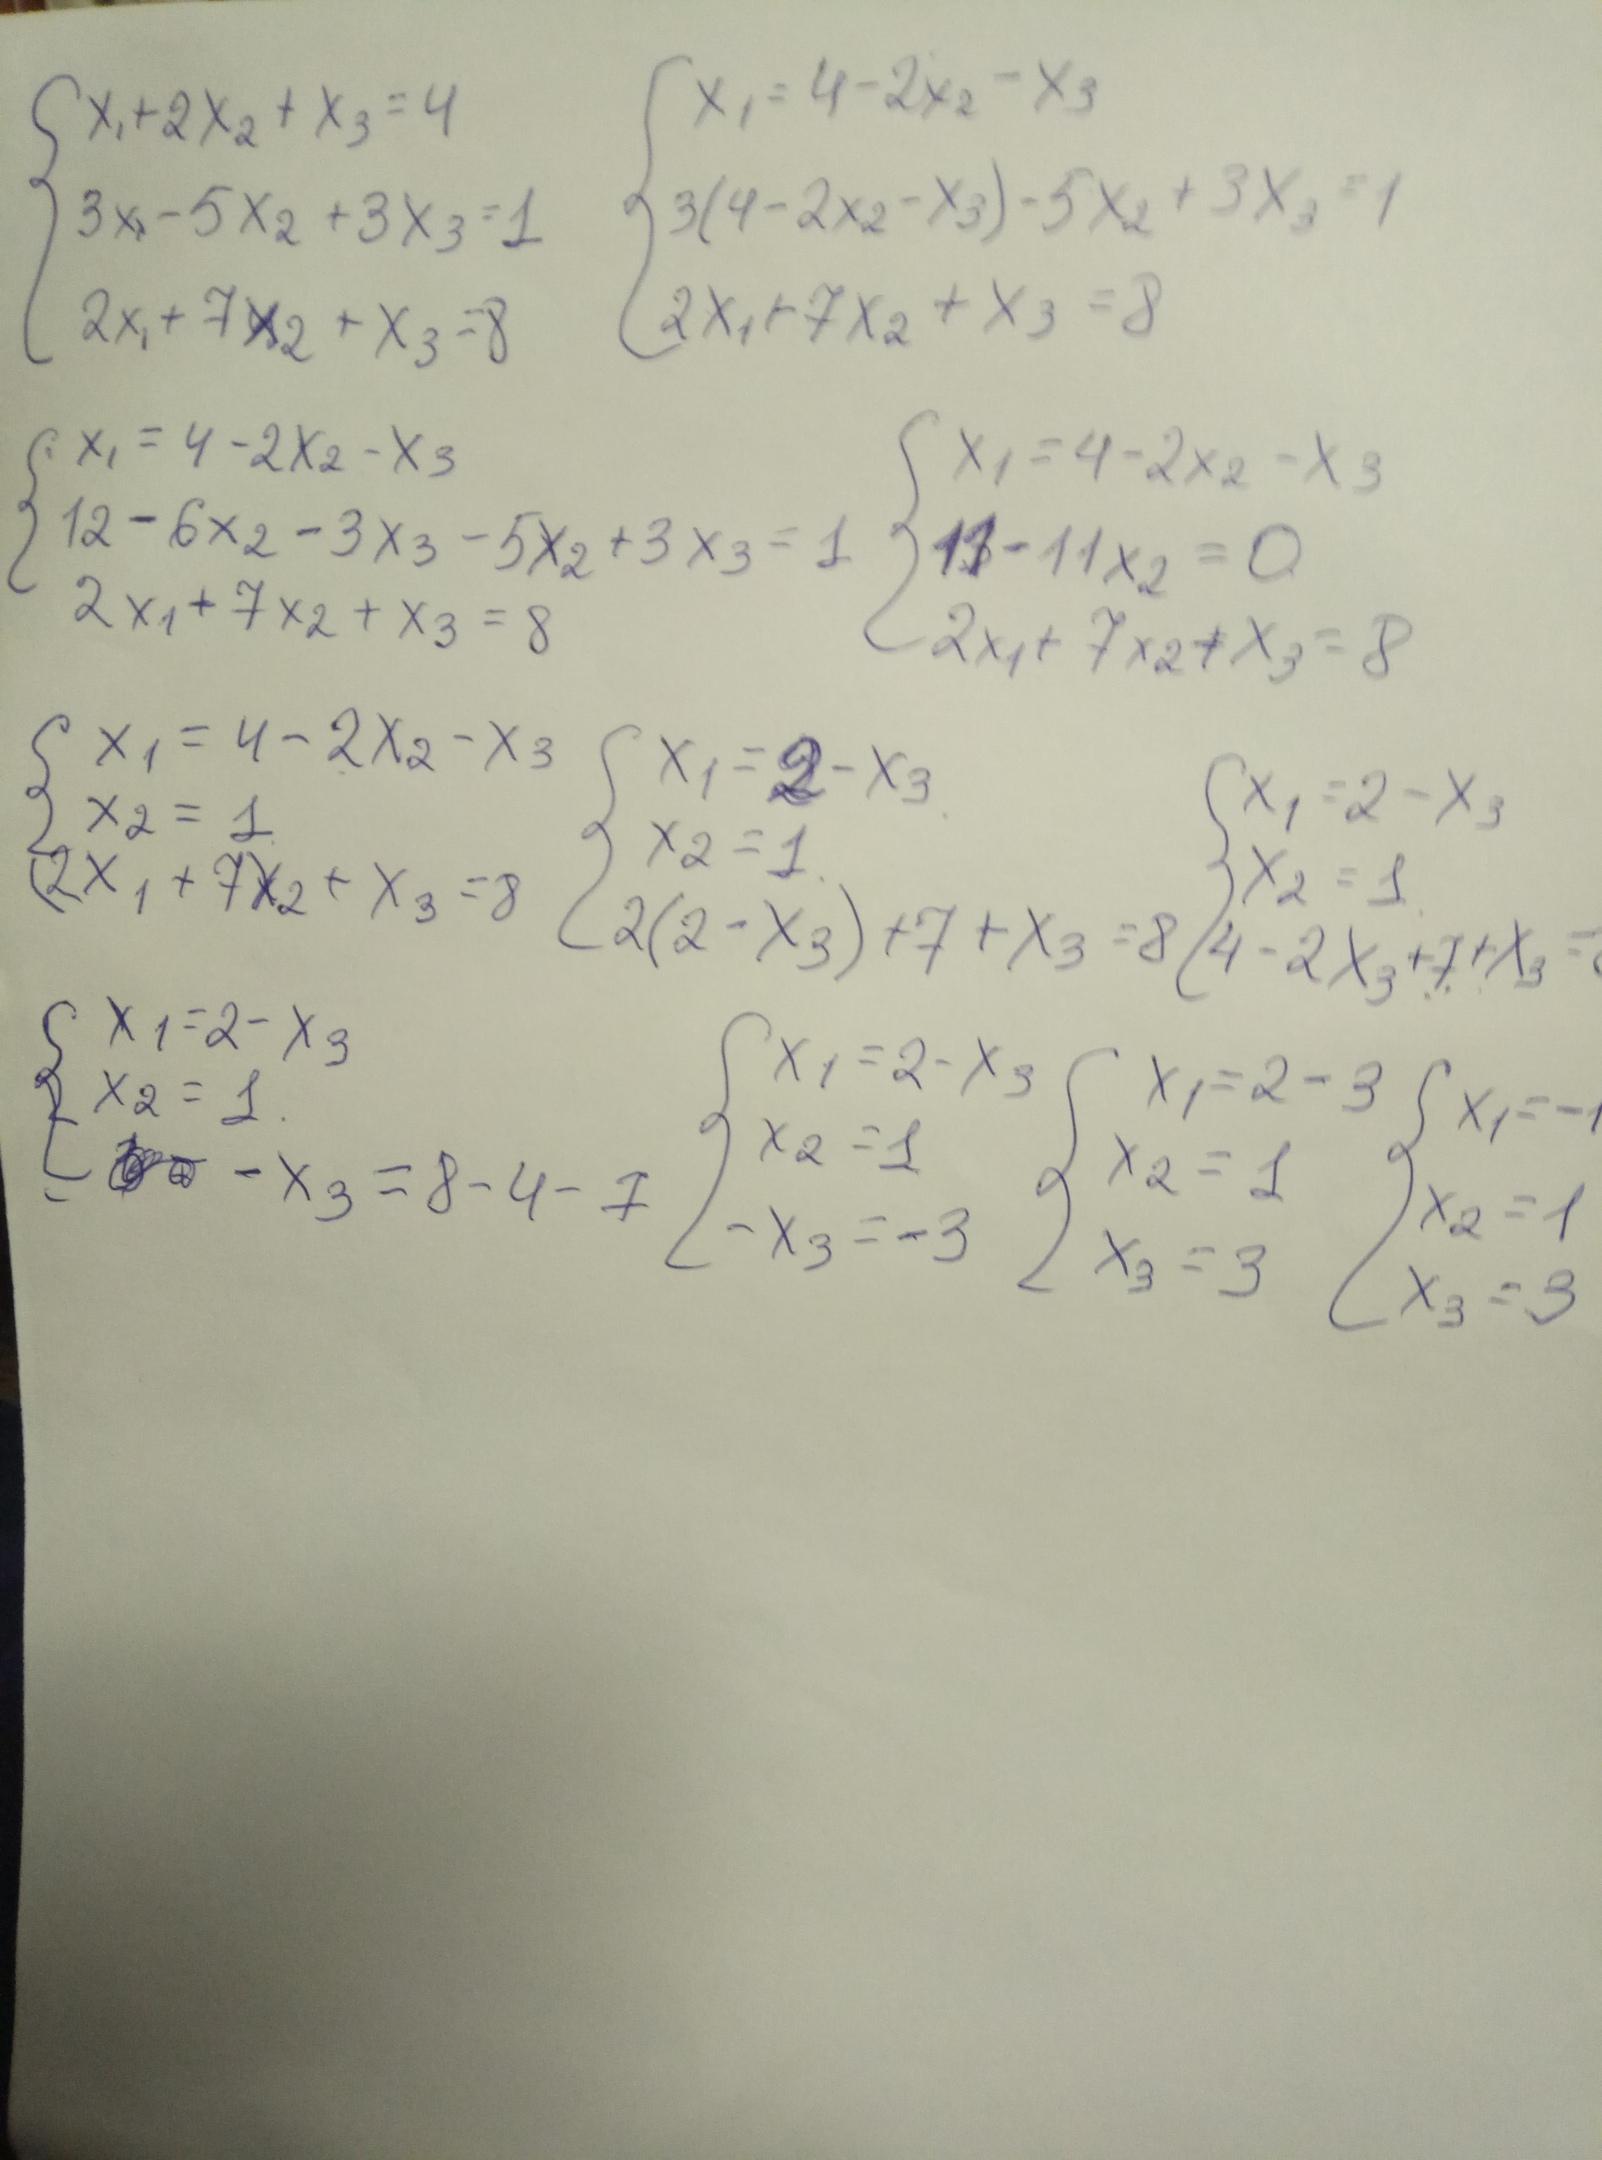 x₁+2x₂+x₃=4
3x₁-5x₂+3x₃=1
2x₁+7x₂+x₃=8
x₁=4-2x₂-x₃
3(4-2x₂-x₃)-5x₂+3x₃=1
2x₁+7x₂+x₃=8
x₁=4-2x₂-x₃
12-6x₂-3x₃-5x₂+3x₃=1
2x₁+7x₂+x₃=8
x₁=4-2x₂-x₃
11-11x₂=0
2x₁+7x₂+x₃=8
x₁=4-2x₂-x₃
x₂=1
2x₁+7x₂+x₃=8
x₁=2-x₃
x₂=1
2(2-x₃)+7+x₃=8
x₁=2-x₃
x₂=1
4-2x₃+7+x₃=
x₁=2-x₃
x₂=1
-x₃=8-4-7
x₁=2-x₃
x₂=1
-x₃=-3
x₁=2-3
x₂=1
x₃=3
x₁=-1
x₂=1
x₃=3